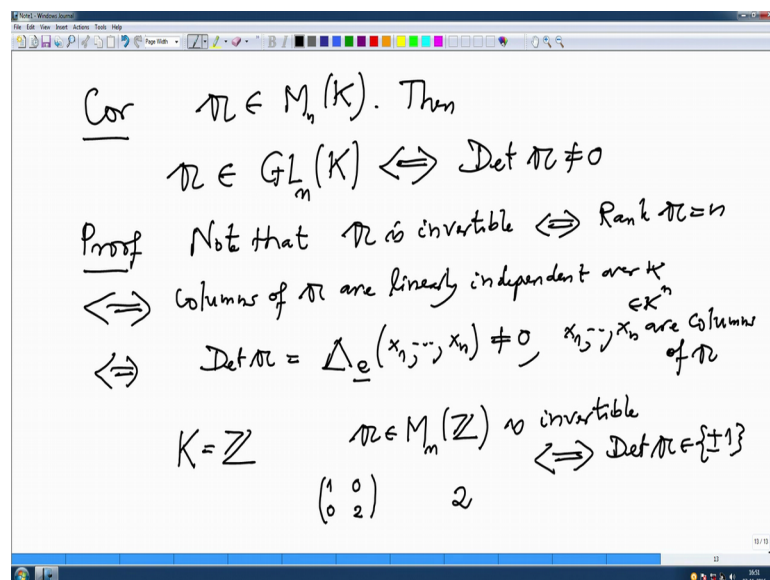 Note1 - Windows Journal
File Edit View Insert Actions Tools Help
Page Width
Cor 𝔄 ∈ M_n(K). Then
𝔄 ∈ GL_n(K) ⟺ Det 𝔄 ≠ 0
Proof Note that 𝔄 is invertible ⟺ Rank 𝔄 = n
⟺ Columns of 𝔄 are linearly independent over K
⟺ Det 𝔄 = Δ_e(x_1, ..., x_n) ≠ 0, x_1, ..., x_n ∈ K^n are columns of 𝔄
K = ℤ 𝔄 ∈ M_n(ℤ) is invertible
⟺ Det 𝔄 ∈ {±1}
(1 0
0 2) 2
13/13
13
16:51